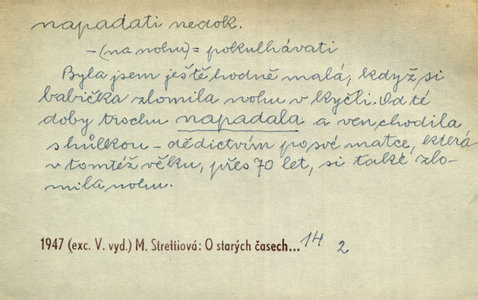 napadati nedok.
– (na nohu) = pokulhávati
Byla jsem ještě hodně malá, když si
babička zlomila nohu v kyčli. Od té
doby trochu napadala a ven chodila
s hůlkou – dědictvím po své matce, která
v tomtéž věku, přes 70 let, si také zlo-
mila nohu.
1947 (exc. V. vyd.) M. Strettiová: O starých časech... 14 2